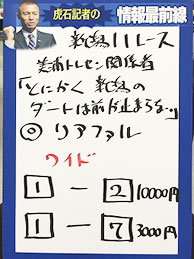 虎石記者の
情報最前線
新潟11レース
美浦トレセン関係者
「とにかく新潟の
ダートは前が止まらない。」
◎リアファル
ワイド
1-2 10000円
1-7 3000円